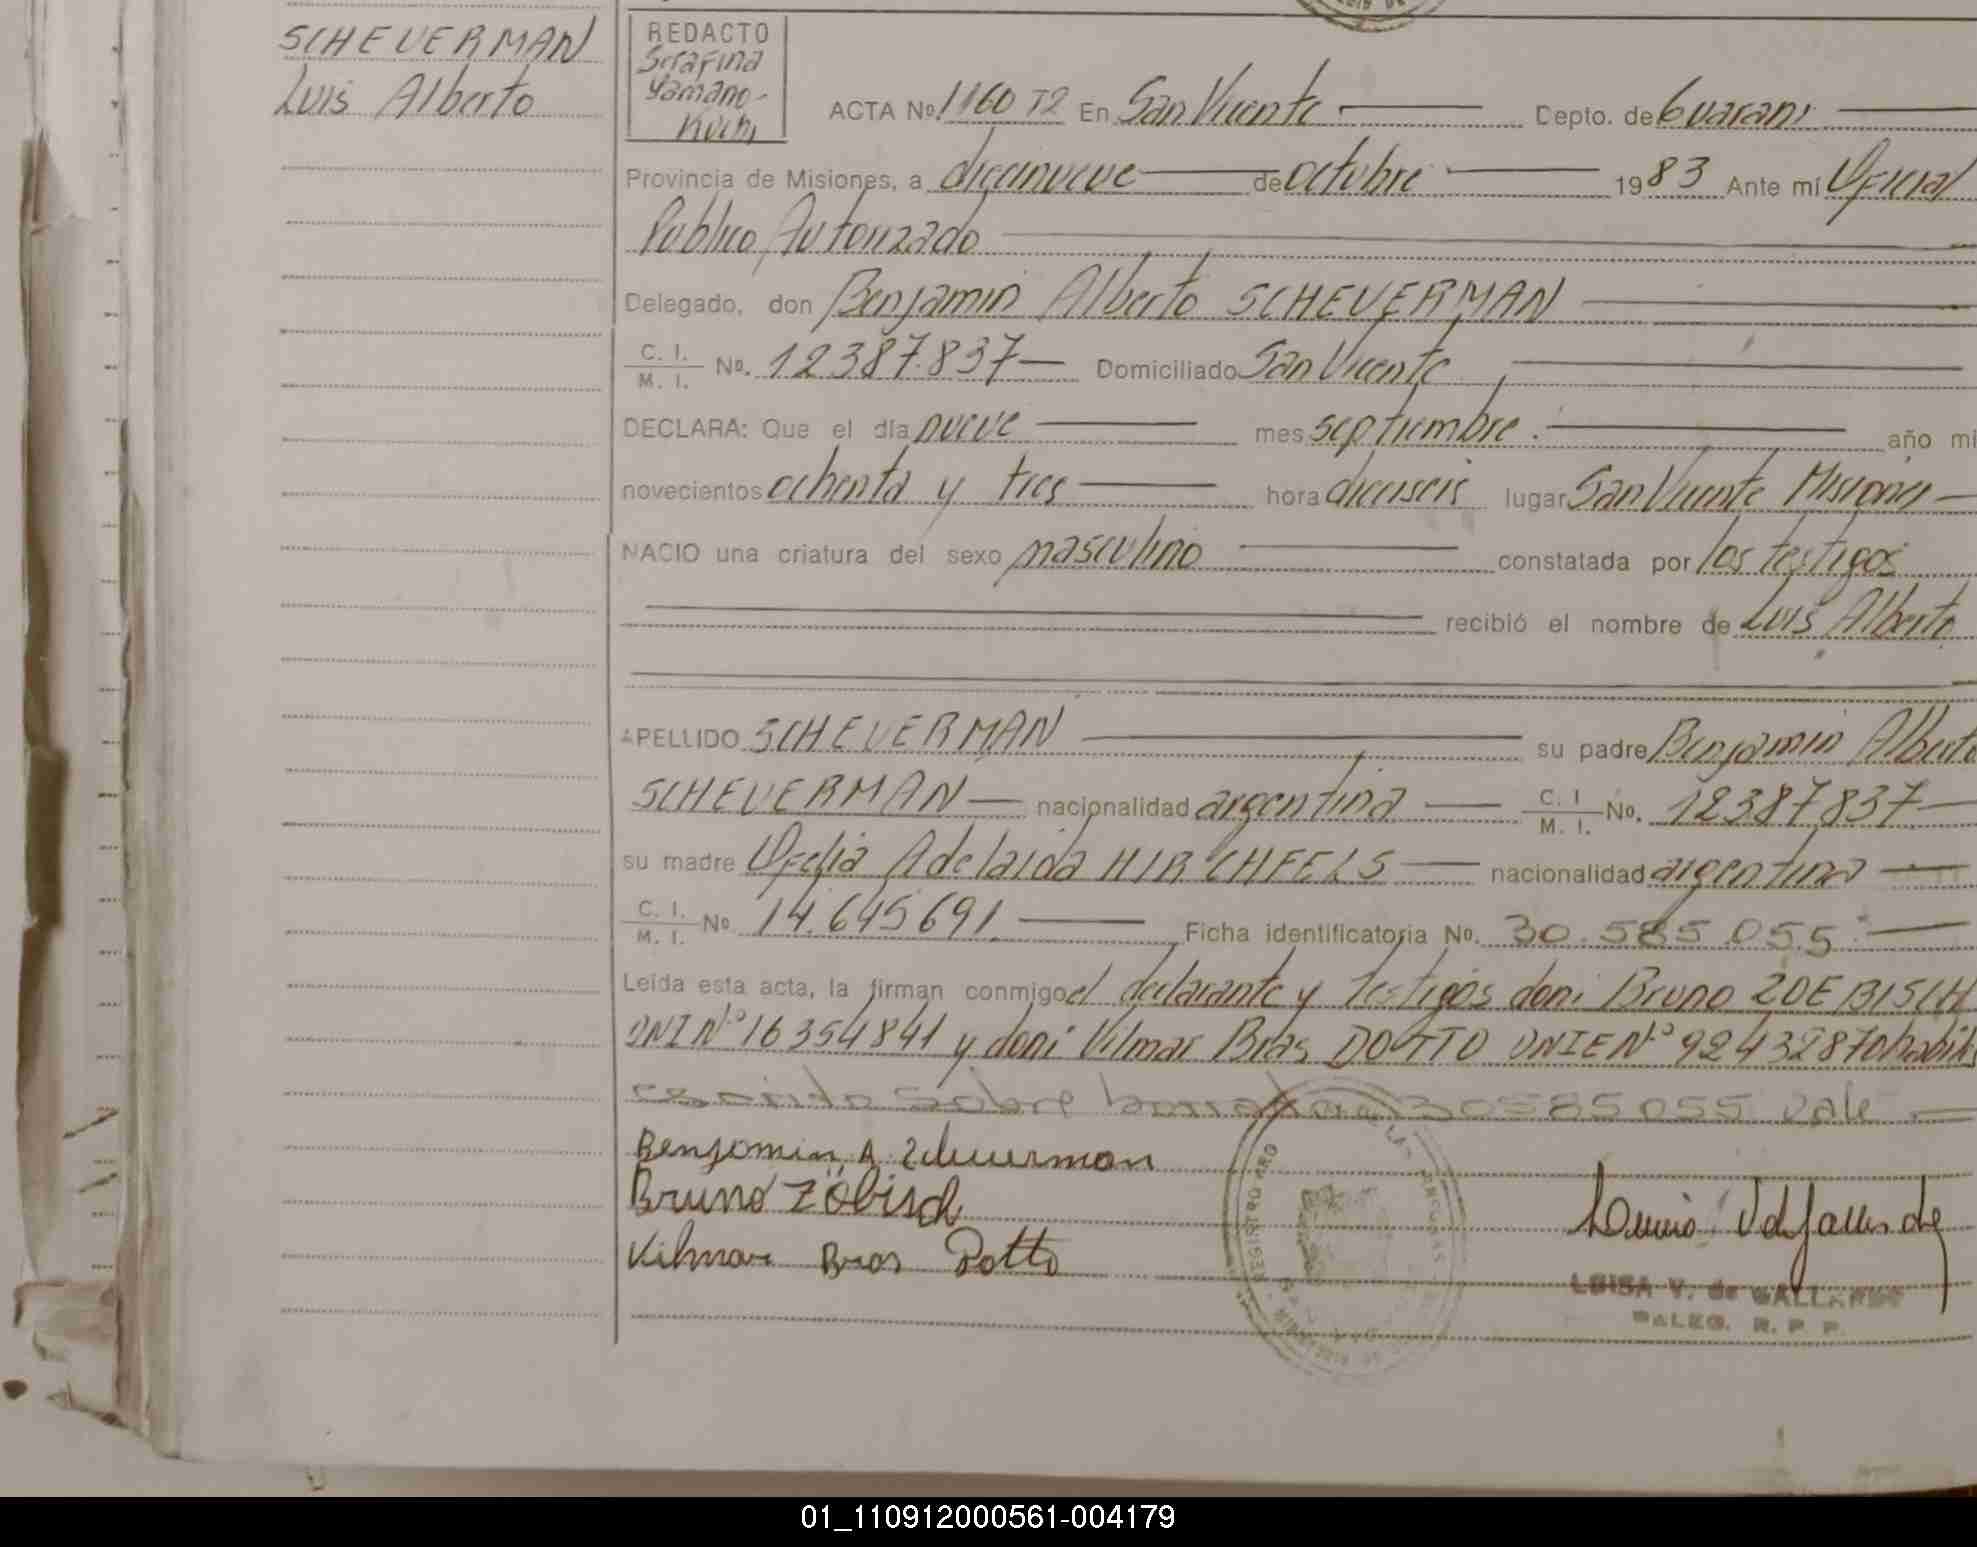 SCHEUERMAN
Luis Alberto
REDACTO
Serafina
Yamano-
Kuchi
ACTA No. 1160 T2 En San Vicente Depto. de Guaraní
Provincia de Misiones, a diecinueve de octubre 1983 Ante mí Oficial
Público Autorizado
Delegado, don Benjamin Alberto SCHEUERMAN
C. I. M. I. No. 12387.837 Domiciliado San Vicente
DECLARA: Que el día nueve mes septiembre. año mi
novecientos ochenta y tres hora dieciseis lugar San Vicente Misiones
NACIO una criatura del sexo masculino constatada por los testigos
recibió el nombre de Luis Alberto
APELLIDO SCHEUERMAN su padre Benjamin Alberto
SCHEUERMAN nacionalidad argentina C. I M. I. No. 12387837
su madre Ofelia Adelaida HIRCHFELS nacionalidad argentina
C. I. M. I. No 14.645691 Ficha identificatoria No. 30.585.055
Leída esta acta, la firman conmigo el declarante y testigos don: Bruno ZOEBISCH
DNI Nº 16354841 y don: Vilmar Bras DOTTO DNIE Nº 92432870 habiles
30585055 Vale
Benjamin A Scheuerman
Bruno Zöbisch
Vilmar Bras Dotto
LUISA V. de GALLARDO
DALEG. R. P. P.
01_110912000561-004179